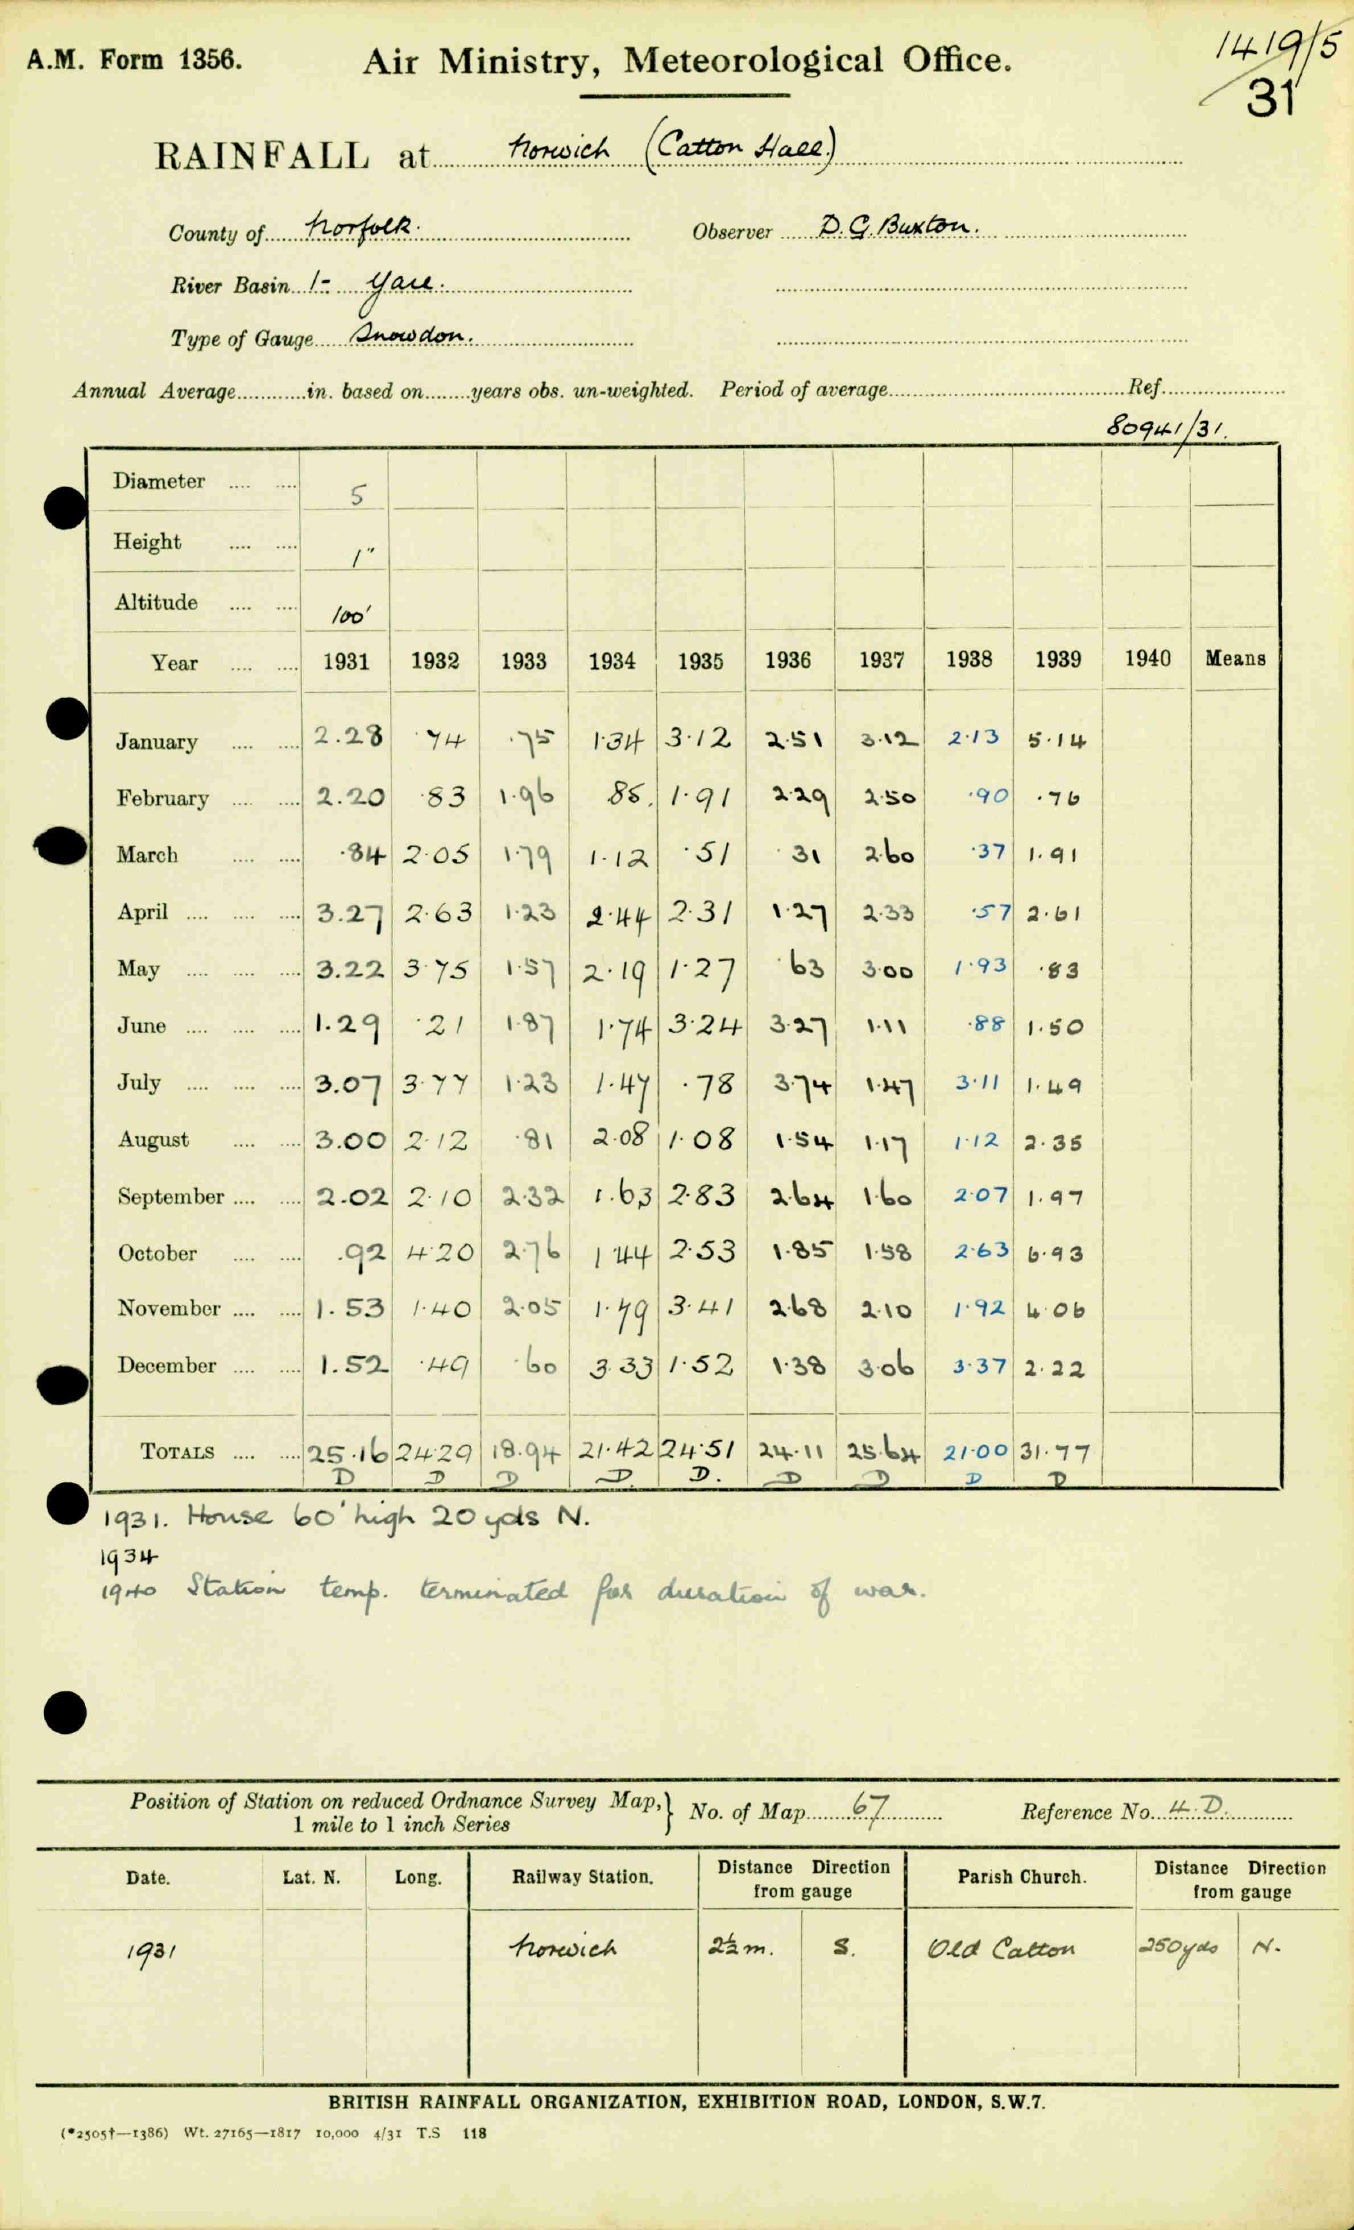 A.M. Form 1356.
Air Ministry, Meteorological Office.
1419/5
31
RAINFALL at Norwich (Catton Hall)
County of Norfolk. Observer D. G. Buxton.
River Basin 1- Yare.
Type of Gauge Snowdon.
Annual Average in. based on years obs. un-weighted. Period of average Ref.
80941/31.
Diameter 5
Height 1"
Altitude 100'
Year 1931 1932 1933 1934 1935 1936 1937 1938 1939 1940 Means
January 2.28 ·74 ·75 1·34 3·12 2·51 3·12 2·13 5·14
February 2.20 ·83 1·96 ·85 1·91 2·29 2·50 ·90 ·76
March ·84 2·05 1·79 1·12 ·51 ·31 2·60 ·37 1.91
April 3.27 2·63 1·23 2·44 2·31 1·27 2·33 ·57 2·61
May 3.22 3·75 1·57 2·19 1·27 ·63 3·00 1·93 ·83
June 1.29 ·21 1·87 1·74 3·24 3·27 1·11 ·88 1·50
July 3.07 3·77 1·23 1·47 ·78 3·74 1·47 3·11 1·49
August 3.00 2·12 ·81 2·08 1·08 1·54 1·17 1·12 2·35
September 2.02 2·10 2·32 1·63 2·83 2·64 1·60 2·07 1·97
October .92 4·20 2·76 1·44 2·53 1·85 1·58 2·63 6·93
November 1.53 1·40 2·05 1·79 3·41 2·68 2·10 1·92 4·06
December 1.52 ·49 ·60 3·33 1·52 1·38 3·06 3·37 2·22
TOTALS 25·16 24·29 18·94 21·42 24·51 24·11 25·64 21·00 31·77
D D D D. D. D D D D
1931. House 60' high 20 yds N.
1934
1940 Station temp. terminated for duration of war.
Position of Station on reduced Ordnance Survey Map, 1 mile to 1 inch Series } No. of Map 67 Reference No. 4.D.
Date. Lat. N. Long. Railway Station. Distance Direction from gauge Parish Church. Distance Direction from gauge
1931 Norwich 2½ m. S. Old Catton 250 yds N.
BRITISH RAINFALL ORGANIZATION, EXHIBITION ROAD, LONDON, S.W.7.
(*2505†—1386) Wt. 27165—1817 10,000 4/31 T.S 118